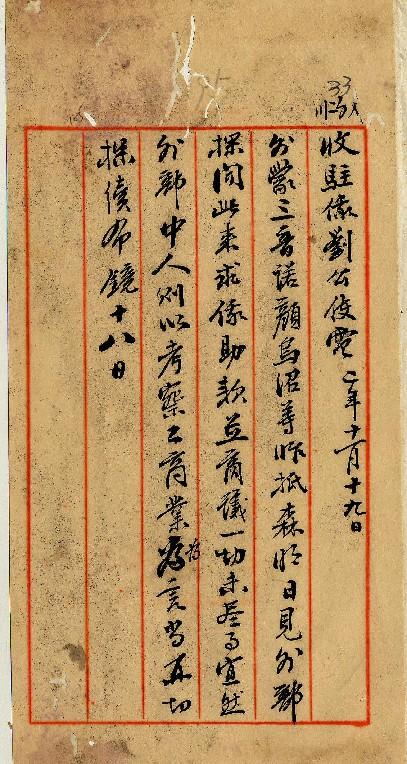 收駐俄劉公使電 二年十一月十九日
外蒙三音諾顏烏泪等昨抵森明日見外部
探聞此来求俄助款並商議一切未盡事宜然
外部中人則以考察工商業為言当再切
探續布鏡十八日
33